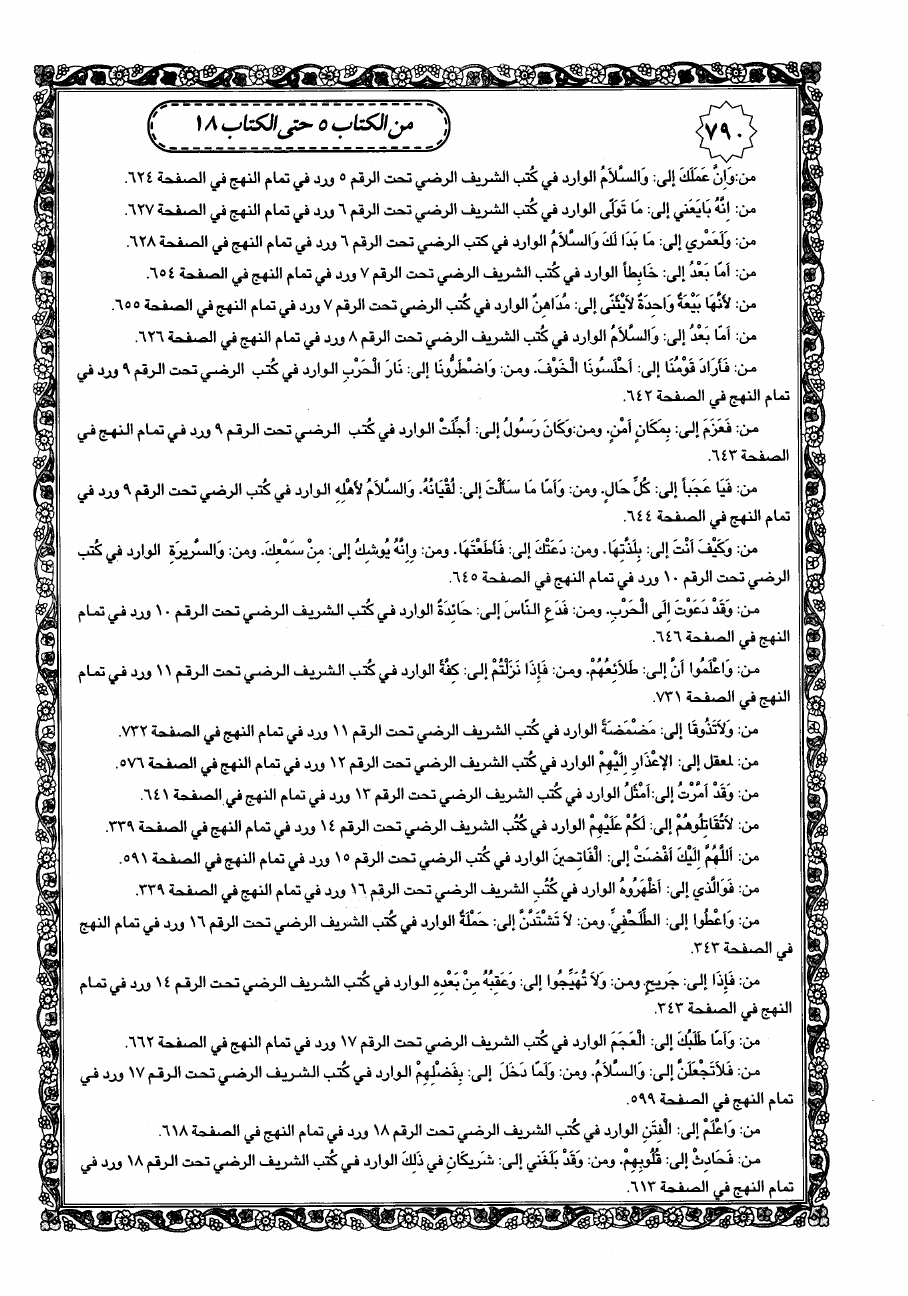 ٧٩٠
من الكتاب ٥ حتى الكتاب ١٨
من:وَإِنَّ عَمَلَكَ إلى: وَالسَّلاَمُ الوارد في كُتب الشريف الرضي تحت الرقم ٥ ورد في تمام النهج في الصفحة ٦٢٤.
من: إنَّهُ بَايَعَني إلى: مَا تَوَلّى الوارد في كُتب الشريف الرضي تحت الرقم ٦ ورد في تمام النهج في الصفحة ٦٢٧.
من: وَلَعَمْري إلى: مَا بَدَا لَكَ وَالسَّلاَمُ الوارد في كتب الرضي تحت الرقم ٦ ورد في تمام النهج في الصفحة ٦٢٨.
من: أمّا بَعْدُ إلى: خَابِطاً الوارد في كُتب الشريف الرضي تحت الرقم ٧ ورد في تمام النهج في الصفحة ٦٥٤.
من: لأنَّهَا بَيْعَةٌ وَاحِدَةٌ لاَيُثَنّى إلى: مُدَاهِنٌ الوارد في كُتب الرضي تحت الرقم ٧ ورد في تمام النهج في الصفحة ٦٥٥.
من: أمّا بَعْدُ إلى: وَالسَّلاَمُ الوارد في كُتب الشريف الرضي تحت الرقم ٨ ورد في تمام النهج في الصفحة ٦٢٦.
من: فَأَرَادَ قَوْمُنَا إلى: أحْلَسُونَا الْخَوْفَ، ومن: وَاضْطَرُّونَا إلى: نَارَ الْحَرْبِ الوارد في كُتب الرضي تحت الرقم ٩ ورد في
تمام النهج في الصفحة ٦٤٢.
من: فَعَزَمَ إلى: بِمَكَانِ أمْنٍ، ومن:وَكَانَ رَسُولُ إلى: أُجِّلَتْ الوارد في كُتب الرضي تحت الرقم ٩ ورد في تمام النهج في
الصفحة ٦٤٣.
من: فَيَا عَجَباً إلى: كُلِّ حَالٍ، ومن: وَأمّا مَا سَألْتَ إلى: لُقْيَانُهُ، وَالسَّلاَمُ لأهْلِهِ الوارد في كُتب الرضي تحت الرقم ٩ ورد في
تمام النهج في الصفحة ٦٤٤.
من: وَكَيْفَ أنْتَ إلى: بِلَذَّتِهَا، ومن: دَعَتْكَ إلى: فَأَطَعْتَهَا، ومن: وَإنَّهُ يُوشِكُ إلى: مِنْ سَمْعِكَ، ومن: وَالسَّريرَةِ الوارد في كُتب
الرضي تحت الرقم ١٠ ورد في تمام النهج في الصفحة ٦٤٥.
من: وَقَدْ دَعَوْتَ إلَى الْحَرْبِ، ومن: فَدَعِ النَّاسَ إلى: حَائِدَةٌ الوارد في كُتب الشريف الرضي تحت الرقم ١٠ ورد في تمام
النهج في الصفحة ٦٤٦.
من: وَاعْلَمُوا أنَّ إلى: طَلاَئِعُهُمْ، ومن: فَإِذَا نَزَلْتُمْ إلى: كِفَّةً الوارد في كُتب الشريف الرضي تحت الرقم ١١ ورد في تمام
النهج في الصفحة ٧٣١.
من: وَلاَتَذُوقَا إلى: مَضْمَضَةً الوارد في كُتب الشريف الرضي تحت الرقم ١١ ورد في تمام النهج في الصفحة ٧٣٢.
من: لمعقل إلى: الإعْذَارِ إلَيْهِمْ الوارد في كُتب الشريف الرضي تحت الرقم ١٢ ورد في تمام النهج في الصفحة ٥٧٦.
من: وَقَدْ أمَّرْتُ إلى:أمْثَلُ الوارد في كُتب الشريف الرضي تحت الرقم ١٣ ورد في تمام النهج في الصفحة ٦٤١.
من: لاَتُقَاتِلُوهُمْ إلى: لَكُمْ عَلَيْهِمْ الوارد في كُتُب الشريف الرضي تحت الرقم ١٤ ورد في تمام النهج في الصفحة ٣٣٩.
من: اَللَّهُمَّ إلَيْكَ أفْضَتْ إلى: الْفَاتِحينَ الوارد في كُتب الشريف الرضي تحت الرقم ١٥ ورد في تمام النهج في الصفحة ٥٩١.
من: فَوَالَّذي إلى: أظْهَرُوهُ الوارد في كُتُبِ الشريف الرضي تحت الرقم ١٦ ورد في تمام النهج في الصفحة ٣٣٩.
من: وَاعْطُوا إلى: الطِّلَحْفِيِّ ومن: لاَ تَشْتَدَّنَّ إلى: حَمْلَةٌ الوارد في كُتب الشريف الرضي تحت الرقم ١٦ ورد في تمام النهج
في الصفحة ٣٤٣.
من: فَإِذَا إلى: جَريحٍ ومن: وَلاَ تُهَيِّجُوا إلى: وَعَقِبُهُ مِنْ بَعْدِهِ الوارد في كُتب الشريف الرضي تحت الرقم ١٤ ورد في تمام
النهج في الصفحة ٣٤٣.
من: وَأمّا طَلَبُكَ إلى: الْعَجَمَ الوارد في كُتب الشريف الرضي تحت الرقم ١٧ ورد في تمام النهج في الصفحة ٦٦٢.
من: فَلاَتَجْعَلَنَّ إلى: وَالسَّلاَمُ، ومن: وَلَمّا دَخَلَ إلى: بِفَضْلِهِمْ الوارد في كُتب الشريف الرضي تحت الرقم ١٧ ورد في
تمام النهج في الصفحة ٥٩٩.
من: وَاعْلَمْ إلى: الْفِتَنِ الوارد في كُتب الشريف الرضي تحت الرقم ١٨ ورد في تمام النهج في الصفحة ٦١٨.
من: فَحَادِثْ إلى: قُلُوبِهِمْ، ومن: وَقَدْ بَلَغَني إلى: شَريكَانِ في ذَلِكَ الوارد في كُتب الشريف الرضي تحت الرقم ١٨ ورد في
تمام النهج في الصفحة ٦١٣.